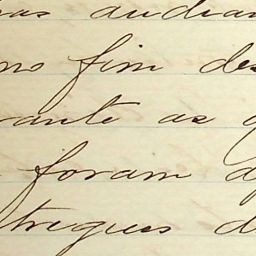 nas audian
no fim des
rante as g
foram a
tregues d